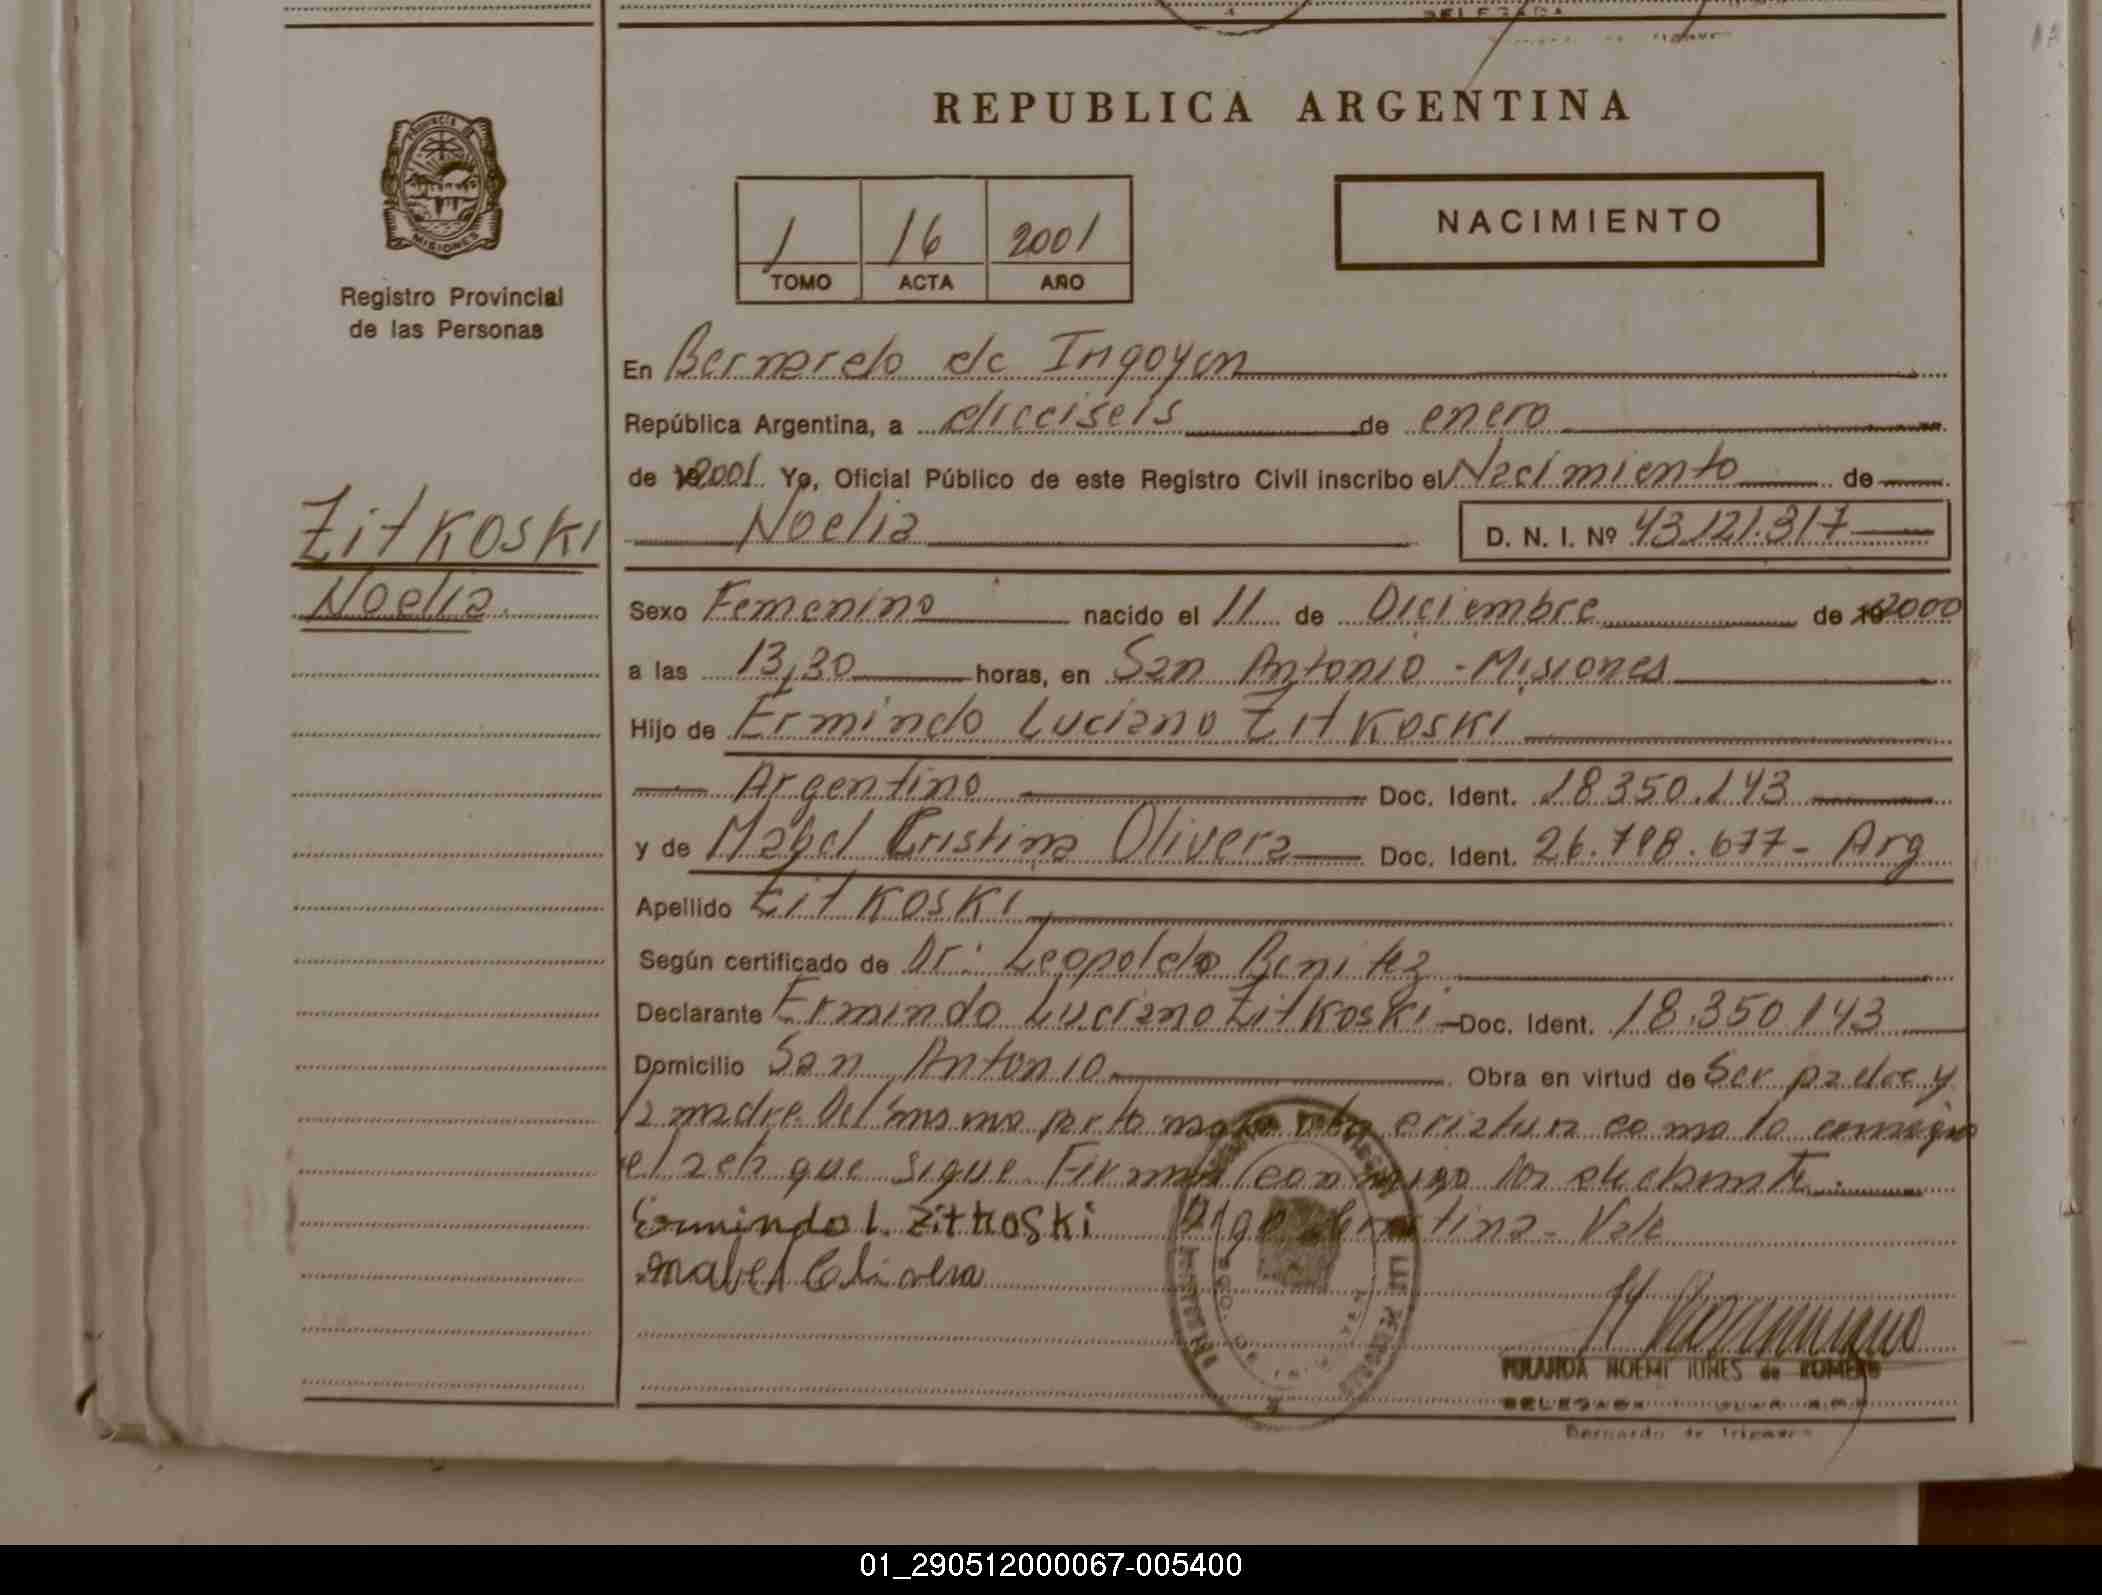 REPUBLICA ARGENTINA
PROVINCIA DE
MISIONES
Registro Provincial
de las Personas
1 16 2001
TOMO ACTA AÑO
NACIMIENTO
En Bernardo de Irigoyen
República Argentina, a dieciseis de enero
de 2001 Yo, Oficial Público de este Registro Civil inscribo el Nacimiento de
Noelia D. N. I. Nº 43.121.317
Zitkoski
Noelia
Sexo Femenino nacido el 11 de Diciembre de 2000
a las 13,30 horas, en San Antonio - Misiones
Hijo de Ermindo Luciano Zitkoski
Argentino Doc. Ident. 18.350.143
y de Mabel Cristina Olivera Doc. Ident. 26.798.677- Arg
Apellido Zitkoski
Según certificado de Dr: Leopoldo Benitez
Declarante Ermindo Luciano Zitkoski Doc. Ident. 18.350.143
Domicilio San Antonio Obra en virtud de Ser padre y
la madre Del mismo parto nacio otra criatura como lo consigna
el acta que sigue Firman conmigo los declarante.
Ermindo L. Zitkoski Digo Cristina - Vale
Mabel Olivera
YOLANDA NOEMI de ROMERO
DELEGADA
Bernardo de Irigoyen
01_290512000067-005400